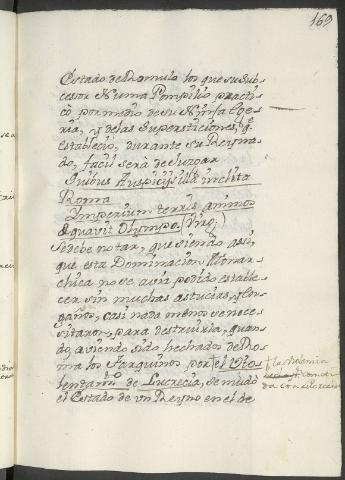 169
Estado de Romulo los que su sub-
cessor Numa Pompilio practi-
cò por medio de su Ninfa Ege-
ria, y delas supersticiones, q.
establecio, durante su Reyna-
do, facil serà de Juzgar
Quibus Auspicijs illa inclita
Roma
Imperium terris, animos
æquavit Olympo. (Virg.)
Se debe notar, que siendo assi,
que esta Dominacion Monar-
chica no se avia podido estable-
cer sin muchas astucias, y En-
gaños, casi nada menos se nece-
sitaron, para destruirla, quan-
do, aviendo sido hechados de Ro-
ma los Tarquinos por el Vio-
lentam.to de Lucrecia, se mudó
el Estado de un Reyno en el de
la violencia
come-
da con Lucrecia